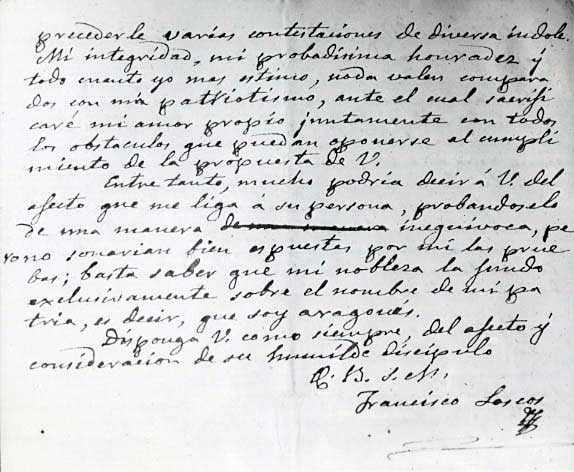 precederle varias contestaciones de diversa indole.
Mi integridad, mi probadisima honradez y
todo cuanto yo mas estimo, nada valen compara
dos con mi patriotismo, ante el cual sacrifi
caré mi amor propio juntamente con todos
los obstaculos, que puedan oponerse al cumpli
miento de la propuesta de V.
Entre tanto, mucho podria decir á V. del
afecto que me liga a su persona, probandoselo
de una manera inequivoca, pe
ro no sonarian bien espuestas por mi las prue
bas; basta saber que mi nobleza la fundo
exclusivamente sobre el nombre de mi pa
tria, es decir, que soy aragonés.
Disponga V. como siempre, del afecto y
consideracion de su humilde discipulo
Q. B. S. M.
Francisco Loscos